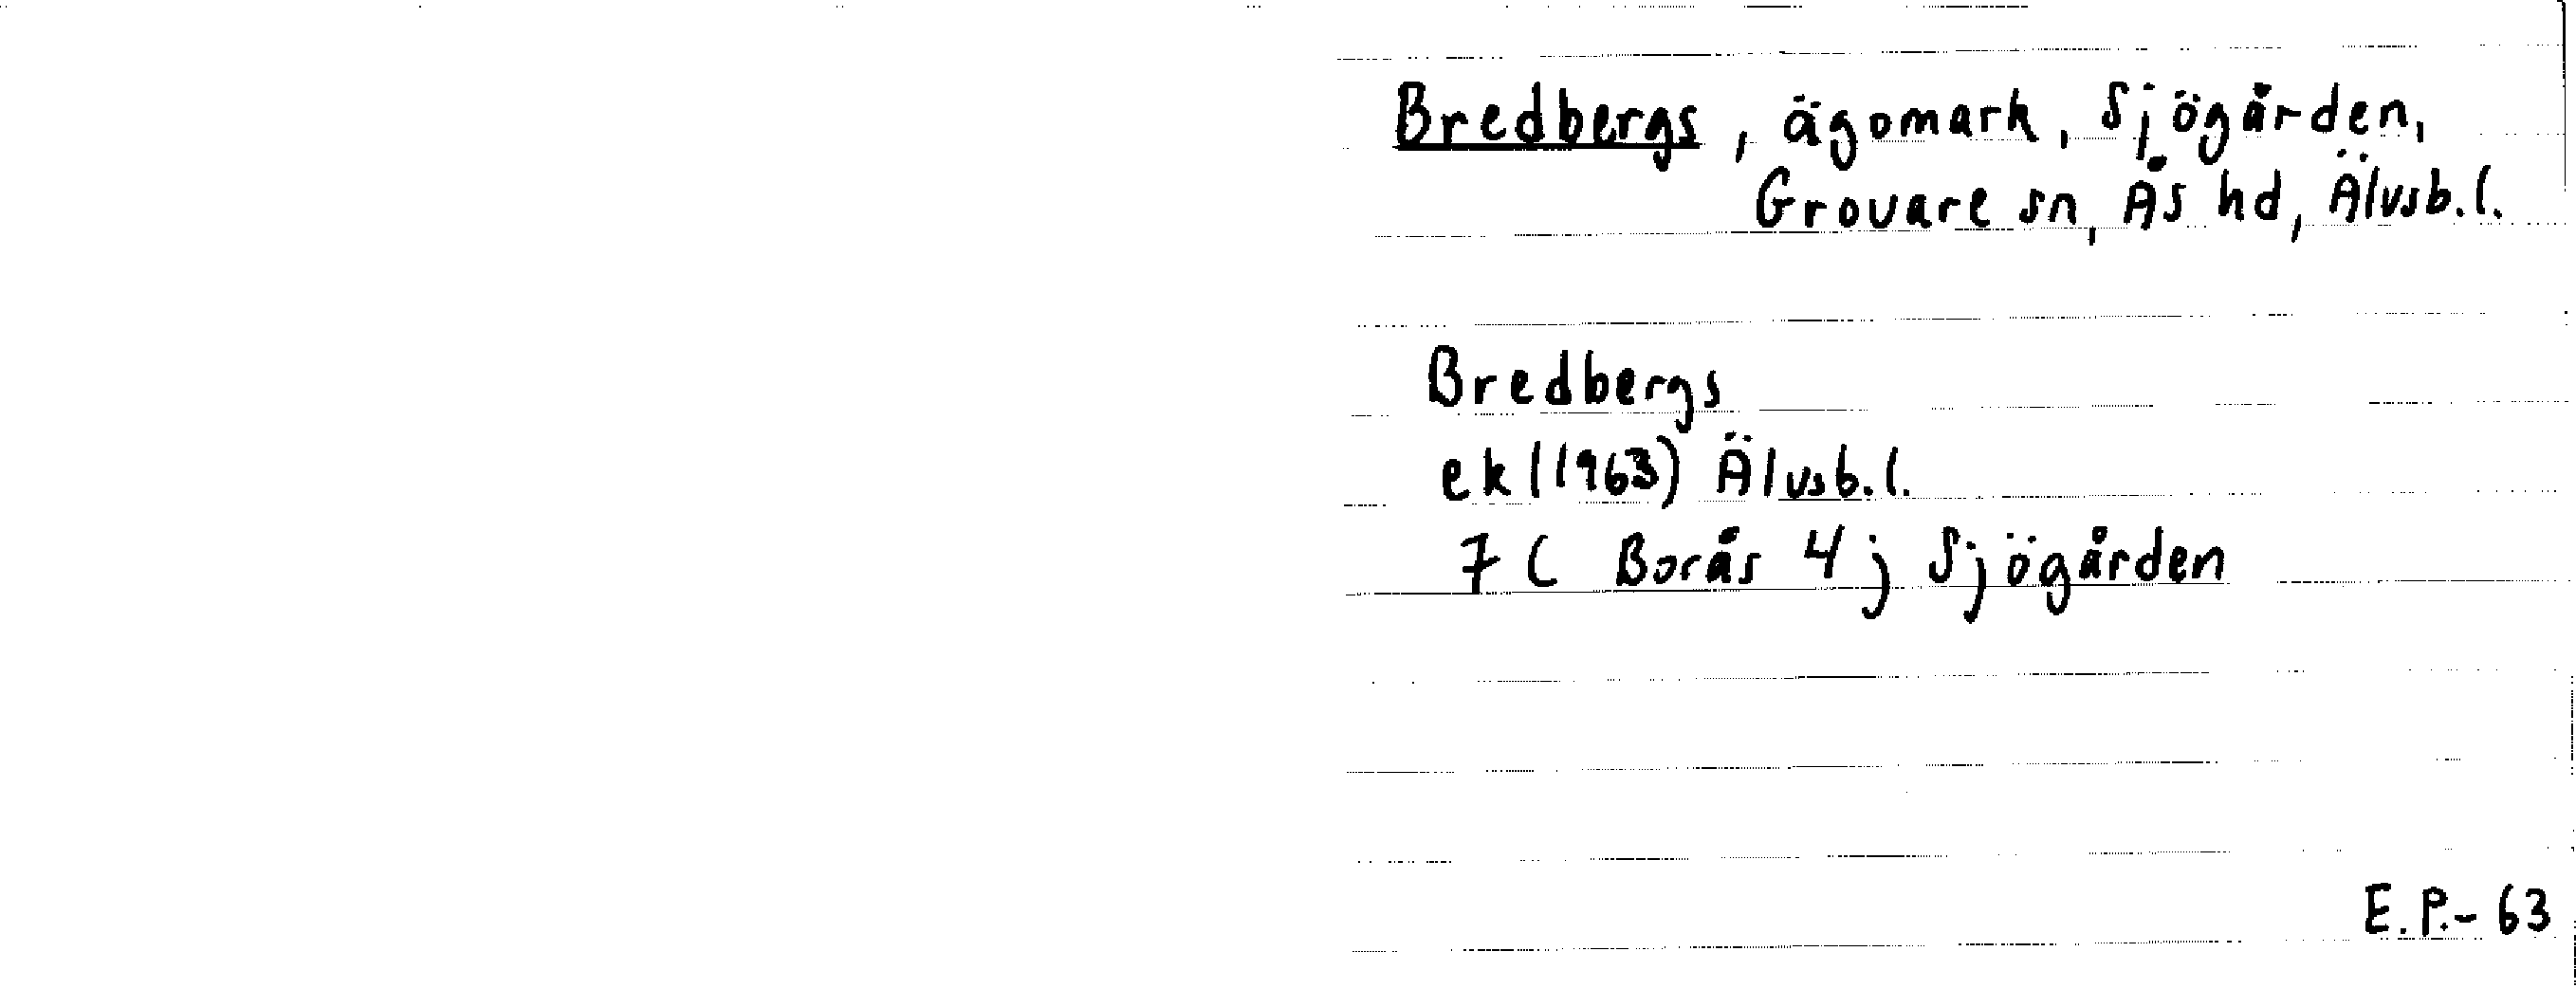 Bredbergs, ägomark, Sjögården,
Grovare sn, Ås hd, Älvsb.l.
Bredbergs
ek (1963) Älvsb.l.
7 C Borås 4 j Sjögården
E.P.-63